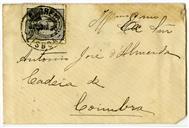 Illmo Exmo
Snr
Antonio José d'Almeida
Cadeia de
Coimbra